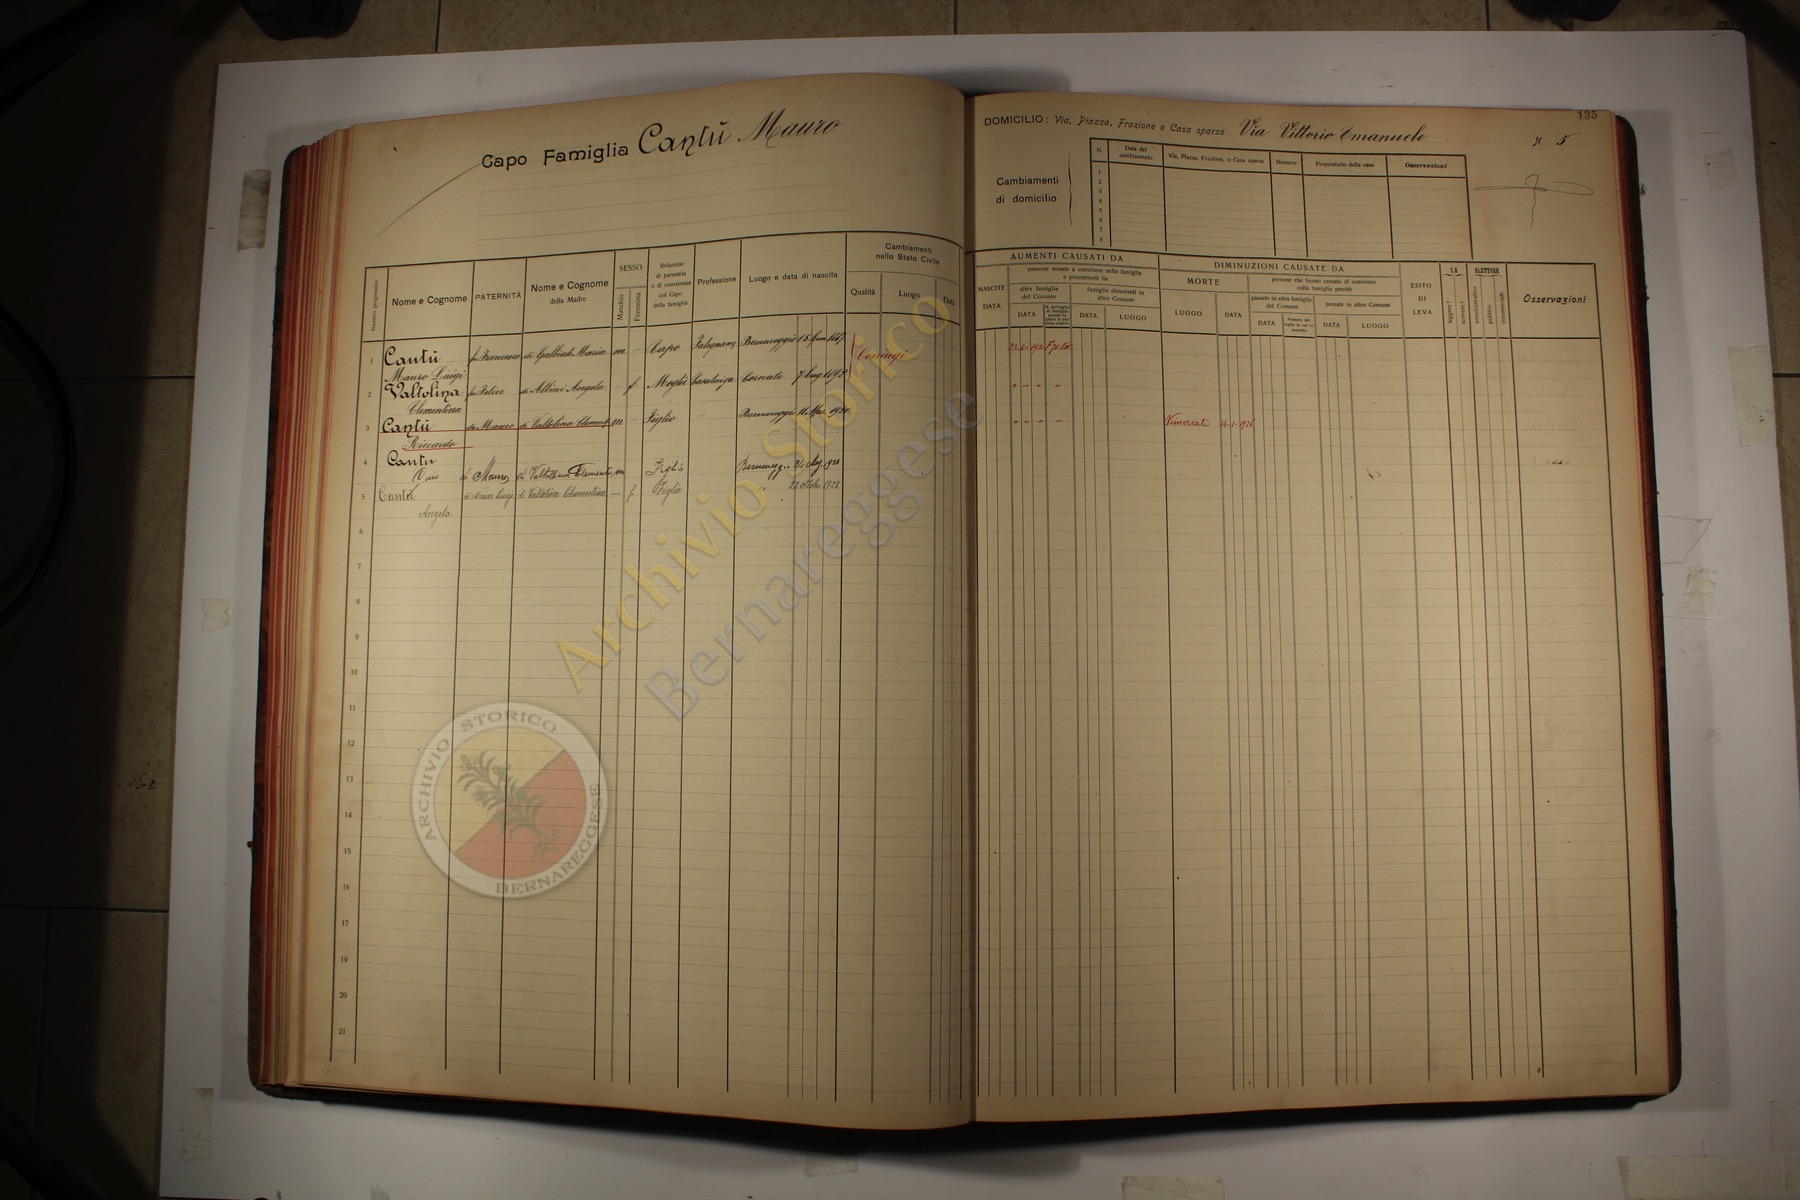 Capo Famiglia Cantù Mauro
Numero progressivo
Nome e Cognome
PATERNITÀ
Nome e Cognome
della Madre
SESSO
Maschio
Femmina
Relazione
di parentela
o di convivenza
col Capo
della famiglia
Professione
Luogo e data di nascita
Cambiamenti
nello Stato Civile
Qualità
Luogo
Data
1 Cantù fu Francesco di Galbiati Maria m — Capo Bernareggio Coniugi
Mauro Luigi
2 Valtolina fu Felice di Albini Angela — f Moglie Casalinga Cornate
Clementina
3 Cantù di Mauro di Valtolina m — Figlio — Bernareggio 11 Mar. 1920
Riccardo
4 Cantu di Mauro di Valtolina Clementi m Figlio
5 Cantù di Mauro Luigi di Valtolina Clementina — f Figlia " 22 ottob. 1928
Angela
6
7
8
9
10
11
12
13
14
15
16
17
18
19
20
21
135
DOMICILIO: Via, Piazza, Frazione o Casa sparsa Via Vittorio Emanuele N. 5
Cambiamenti
di domicilio
N.
Data del
cambiamento
Via, Piazza, Frazione, o Casa sparsa
Numero
Proprietario della casa
Osservazioni
1
2
3
4
5
6
7
8
AUMENTI CAUSATI DA
NASCITE
DATA
persone venute a convivere nella famiglia
e provenienti da
altra famiglia
del Comune
DATA
famiglie dimoranti in
altro Comune
DATA
LUOGO
DIMINUZIONI CAUSATE DA
MORTE
LUOGO
DATA
persone che hanno cessato di convivere
colla famiglia perchè
passate in altra famiglia
del Comune
DATA
passate in altro Comune
DATA
LUOGO
ESITO
DI
LEVA
SA
leggere?
scrivere?
ELETTORE
amministrativo
politico
commerciale
Osservazioni
" " " "
" " " " Vimercate 14-1-1926
Archivio Storico
Bernareggese
ARCHIVIO STORICO
BERNAREGGESE